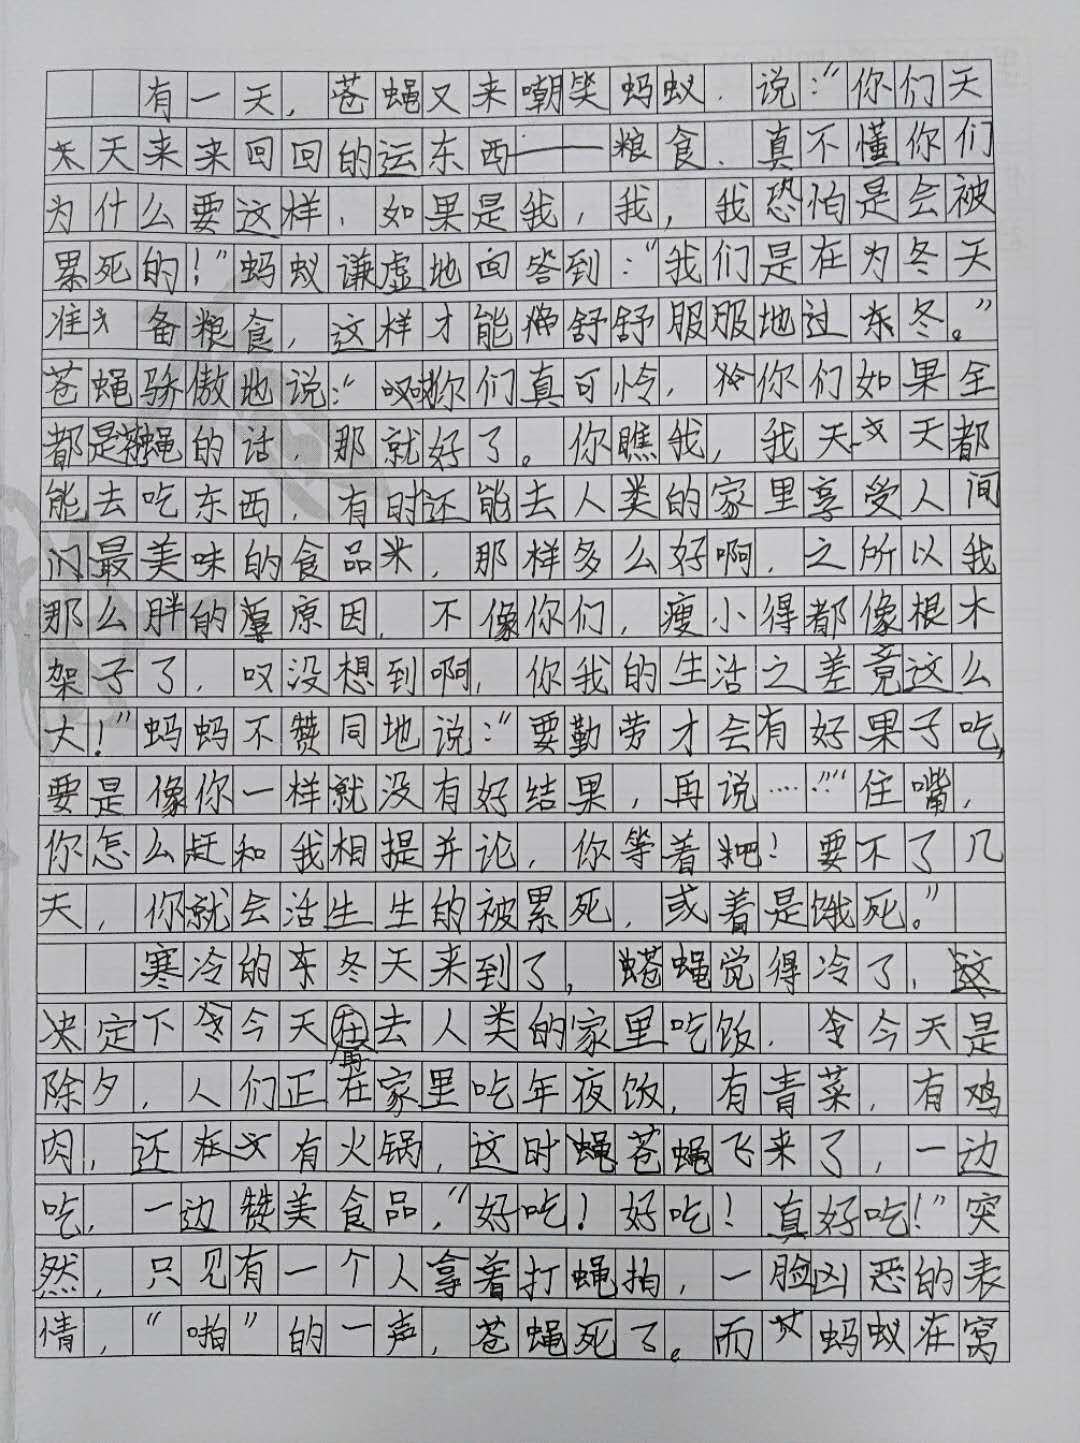 有一天，苍蝇又来嘲笑蚂蚁，说：“你们天
天天来来回回的运东西——粮食，真不懂你们
为什么要这样，如果是我，我，我恐怕是会被
累死的！”蚂蚁谦虚地回答到：“我们是在为冬天
准备粮食，这样才能舒舒服服地过冬。”
苍蝇骄傲地说：“叹你们真可怜，你们如果全
都是苍蝇的话，那就好了。你瞧我，我天天都
能去吃东西，有时还能去人类的家里享受人间
最美味的食品，那样多么好啊，之所以我
那么胖的原因，不像你们，瘦小得都像根木
架子了，叹没想到啊，你我的生活之差竟这么
大！”蚂蚂不赞同地说：“要勤劳才会有好果子吃，
要是像你一样就没有好结果，再说……”“住嘴，
你怎么赶和我相提并论，你等着吧！要不了几
天，你就会活生生的被累死，或着是饿死。”
寒冷的冬天来到了，苍蝇觉得冷了，
决定下今天去人类的家里吃饭，今天是
除夕，人们正在家里吃年夜饭，有青菜，有鸡
肉，还有火锅，这时苍蝇飞来了，一边
吃，一边赞美食品，“好吃！好吃！真好吃！”突
然，只见有一个人拿着打蝇拍，一脸凶恶的表
情，“啪”的一声，苍蝇死了。而蚂蚁在窝